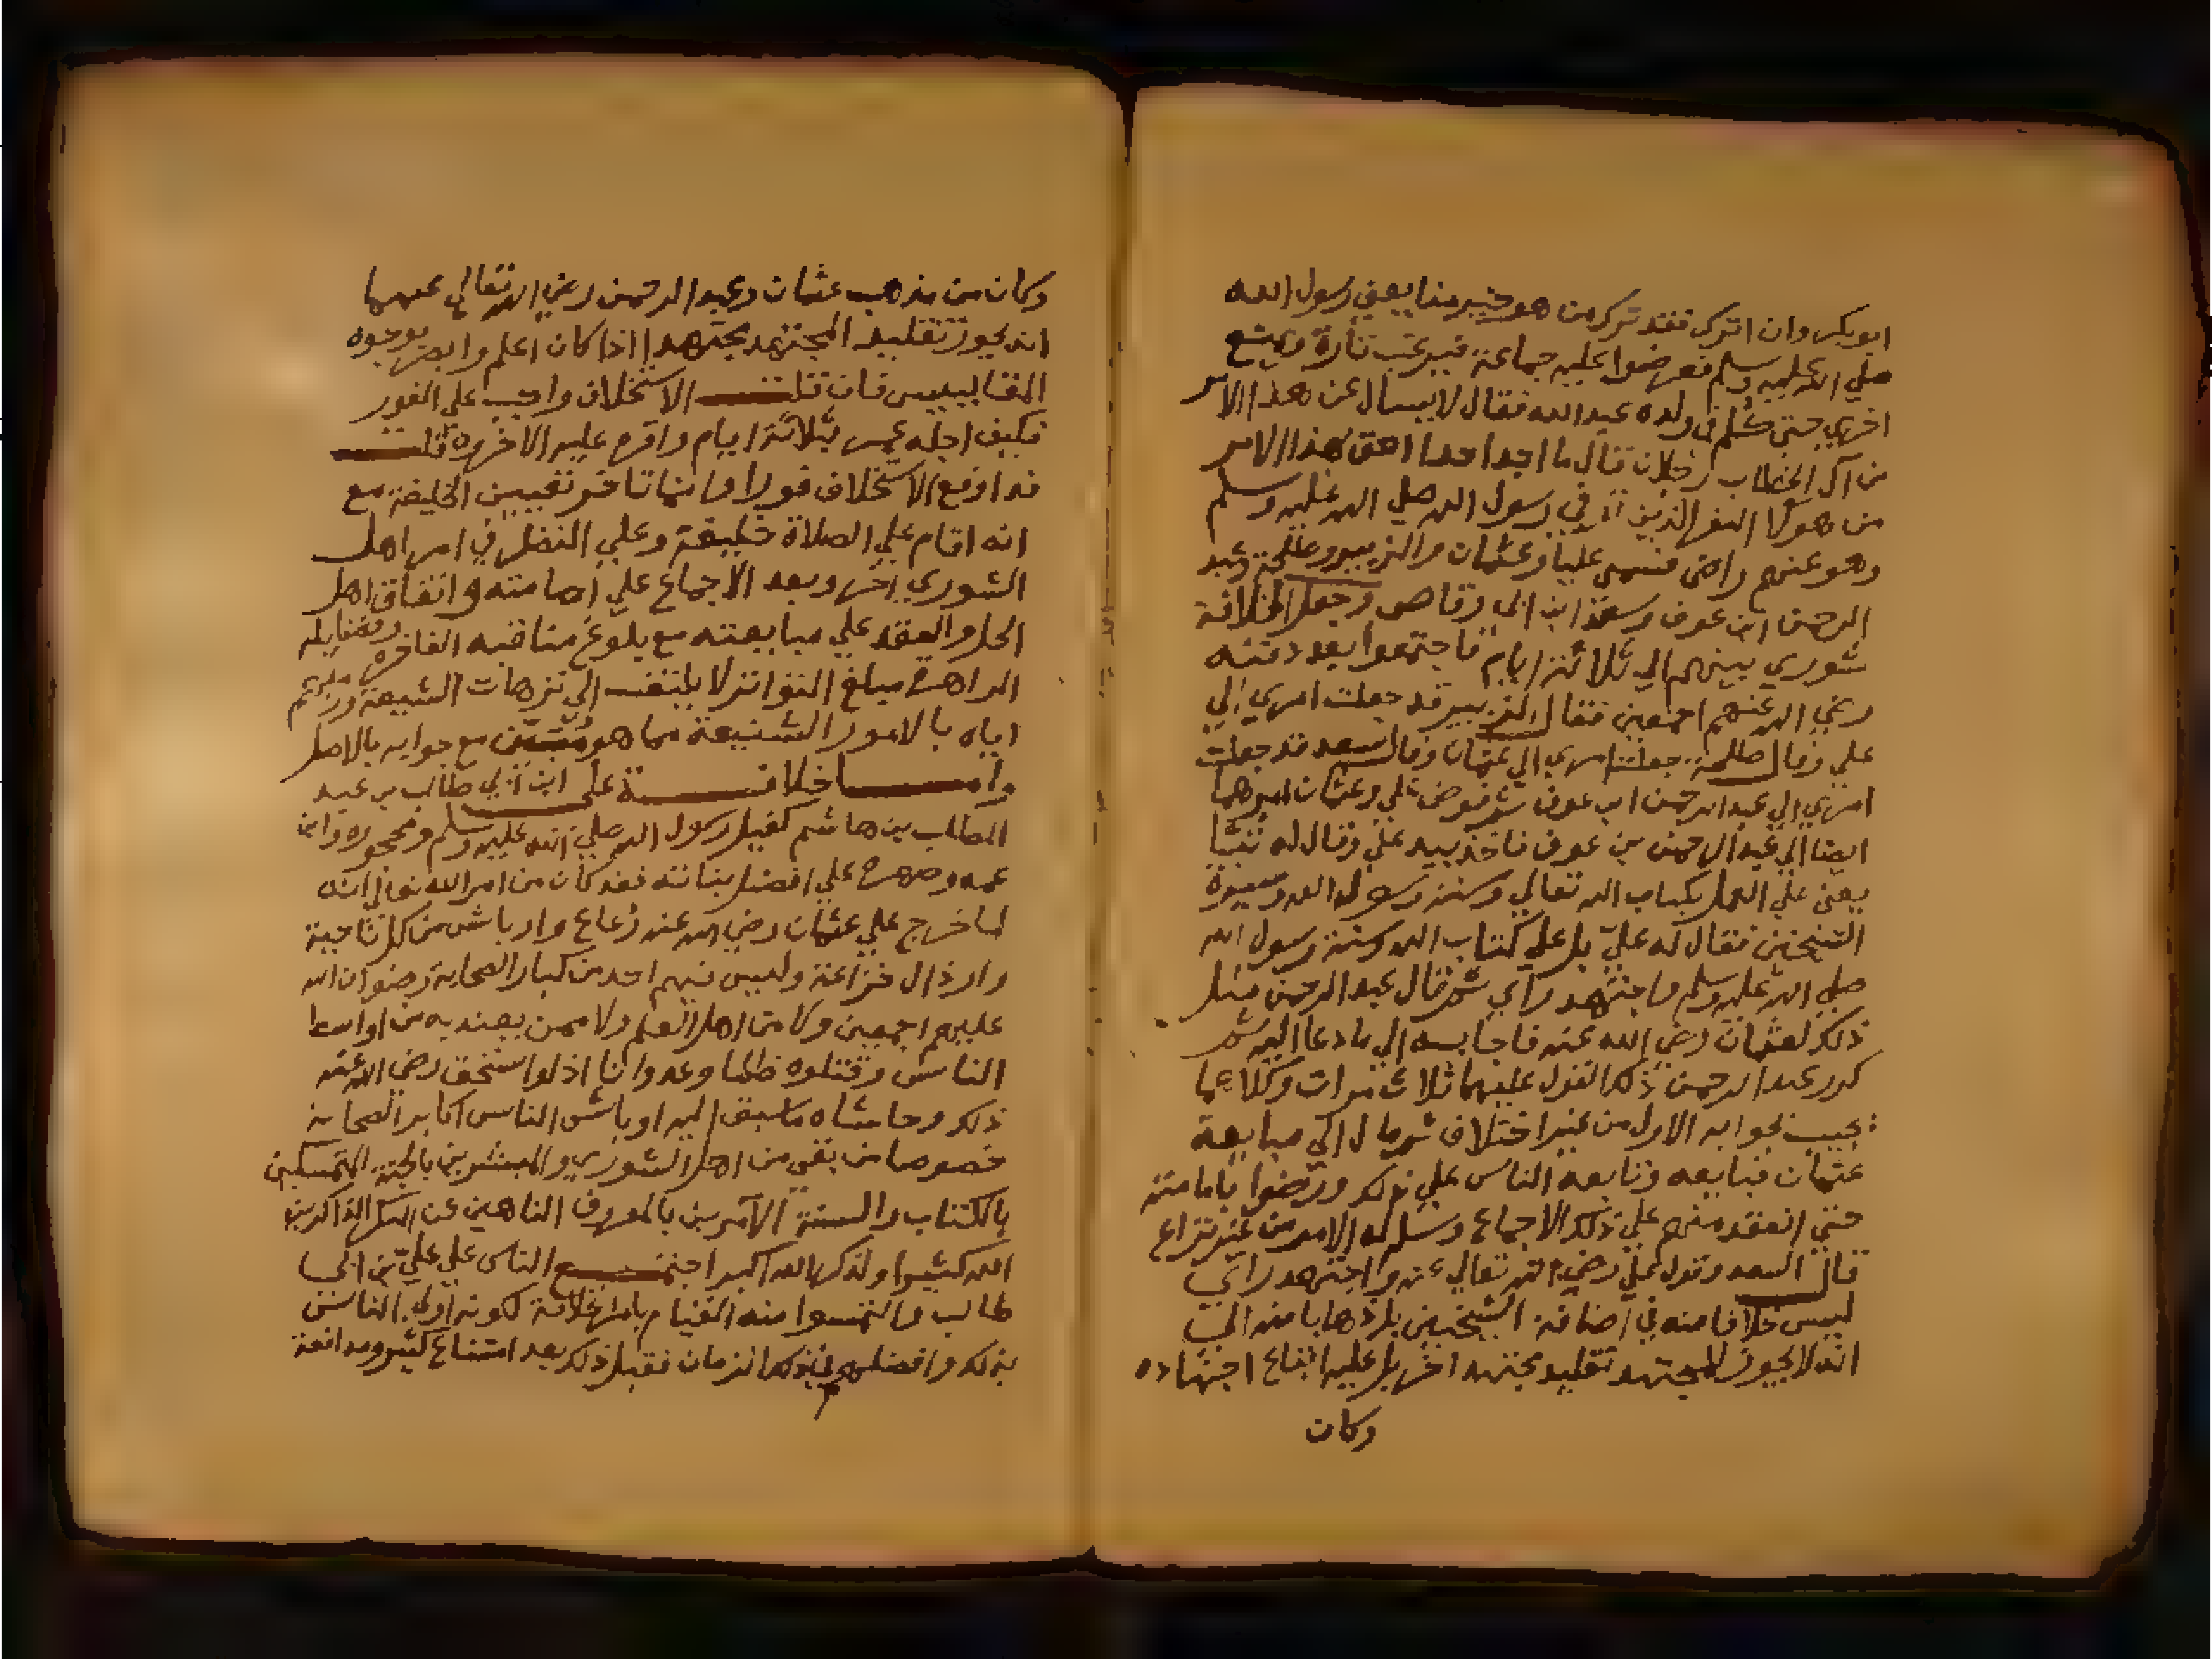 ابوبكر وان اترك فقد ترك من هو خير منا يعني رسول الله
صلي الله عليه وسلم فعرضوا عليه جماعة فيرغب تارة ويمتنع
اخري حتي كلم في ولده عبد الله فقال لا يسال عن هذا الامر
من آل الخطاب رجلان قال ما اجد احدا احق بهذا الامر
من هولا النفر الذين توفي رسول الله صلي الله عليه وسلم
وهو عنهم راض فسمي عليا وعثمان والزبير وطلحة وعبد
الرحمن ابن عوف وسعد ابن ابي وقاص وجعل الخلافة
شوري بينهم الي ثلاثة ايام فاجتمعوا بعد دفنه
رضي الله عنهم اجمعين فقال الزبير قد جعلت امري الي
علي وقال طلحة جعلت امري الي عثمان وقال سعد قد جعلت
امري الي عبد الرحمن ابن عوف ثم فوض علي وعثمان امرهما
ايضا الي عبد الرحمن بن عوف فاخذ بيد علي وقال له
يعني علي العمل بكتاب الله تعالي وسنة رسول الله وسيرة
الشيخين فقال له علي بل علي كتاب الله وسنة رسول الله
صلي الله عليه وسلم واجتهد رآي ثم قال عبد الرحمن مثل
ذلك لعثمان رضي الله عنه فاجابه الي ما دعا اليه ثم
كرر عبد الرحمن ذلك القول عليهما ثلاث مرات وكلاهما
يجيب بجوابه الاول من غير اختلاف ثم مال الي مبايعة
عثمان فبايعه وتابعه الناس علي ذلك ورضوا بامامته
حتي انعقد منهم علي ذلك الاجماع وسلم له الامر من غير نزاع
قال السعد وقول علي رضي الله تعالي عنه واجتهد رآي
ليس خلافا منه في اضافة الشيخين بل ذهابا منه الي
انه لا يجوز للمجتهد تقليد مجتهد اخر بل عليه اتباع اجتهاده
وكان
وكان من مذهب عثمان وعبد الرحمن رضي الله تعالي عنهما
انه يجوز تقليد المجتهد مجتهدا اذا كان اعلم وابصر بوجوه
المقاييس فان قلت الاستخلاف واجب علي الفور
فكيف اجله عمر بثلاثة ايام واقره عليه الاخرون قلت
قد اوقع الاستخلاف فورا وانما تاخر تعيين الخليفة مع
انه اقام علي الصلاة خليفة وعلي النظر في امر اهل
الشوري اخر وبعد الاجماع علي امامته واتفاق اهل
الحل والعقد علي مبايعته مع بلوغ مناقبه الفاخرة وفضايله
الزاهرة مبلغ التواتر لا يلتفت الي نزهات الشيعة ورميهم
اياه بالامور الشنيعة مما هو مبين مع جوابه بالاصل
واما خلافة علي ابن ابي طالب بن عبد
المطلب بن هاشم كفيل رسول الله صلي الله عليه وسلم ومحجوره وابن
عمه وصهره علي افضل بناته فقد كان من امر الله تعالي انه
لما خرج علي عثمان رضي الله عنه رعاع واوباش من كل ناحية
وارذال خزاعة وليس فيهم احد من كبار الصحابة رضوان الله
عليهم اجمعين ولا من اهل العلم ولا ممن يعتد به من اواسط
الناس وقتلوه ظلما وعدوانا اذ لو استحق رضي الله عنه
ذلك وحاشاه ما سبق اليه اوباش الناس اكابر الصحابة
خصوصا من بقي من اهل الشوري والمبشرين بالجنة المتمسكين
بالكتاب والسنة الآمرين بالمعروف الناهين عن المنكر الذاكرين
الله كثيرا ولذكر الله اكبر اجتمع الناس علي علي بن ابي
طالب والتمسوا منه القيام بامر الخلافة لكونه اولي الناس
بذلك وافضلهم في ذلك الزمان فقبل ذلك بعد امتناع كثير ومدافعة